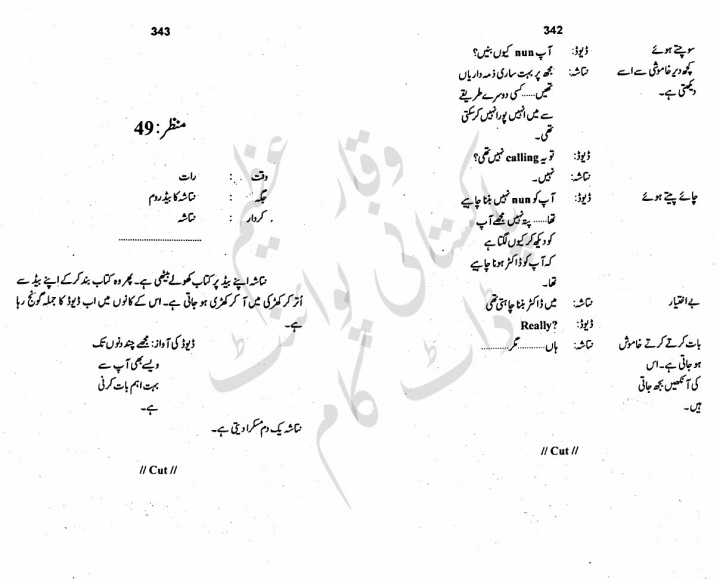 342
سوچتے ہوئے ڈیوڈ: آپ nun کیوں بنیں؟
کچھ دیر خاموشی سے اسے نتاشہ: مجھ پر بہت ساری ذمہ داریاں
دیکھتی ہے۔ تھیں......کسی دوسرے طریقے
سے میں انہیں پورا نہیں کر سکتی
تھی۔
ڈیوڈ: تو یہ calling نہیں تھی؟
نتاشہ: نہیں۔
چائے پیتے ہوئے ڈیوڈ: آپ کو nun نہیں بننا چاہیے
تھا...... پتہ نہیں مجھے آپ
کو دیکھ کر کیوں لگتا ہے
کہ آپ کو ڈاکٹر ہونا چاہیے
تھا۔
بے اختیار نتاشہ: میں ڈاکٹر بننا چاہتی تھی
ڈیوڈ: Really?
بات کرتے کرتے خاموش نتاشہ: ہاں.......... مگر..........
ہو جاتی ہے۔ اس
کی آنکھیں بجھ جاتی
ہیں۔
// Cut //
343
منظر: 49
وقت : رات
جگہ : نتاشہ کا بیڈ روم
کردار : نتاشہ
......................
نتاشہ اپنے بیڈ پر کتاب کھولے بیٹھی ہے۔ پھر وہ کتاب بند کر کے اپنے بیڈ سے
اُتر کر کھڑکی میں آ کر کھڑی ہو جاتی ہے۔ اس کے کانوں میں اب ڈیوڈ کا جملہ گونج رہا
ہے۔
ڈیوڈ کی آواز: مجھے چند دنوں تک
ویسے بھی آپ سے
بہت اہم بات کرنی
ہے۔
نتاشہ یک دم مسکرا دیتی ہے۔
// Cut //
وقار عظیم
پاکستانی پوائنٹ
ڈاٹ کام